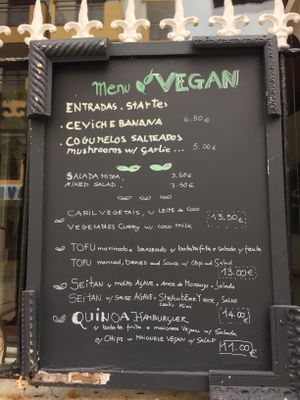 Menu VEGAN
ENTRADAS. Starters
. CEVICHE BANANA 6.50€
. COGUMELOS SALTEADOS
mushrooms w/ Garlic ... 5.00€
SALADA MISTA. 3.50€
MIXED SALAD. 3.50€
CARIL VEGETAIS, c/ LEITE de COCO 13,50€
VEGETABLES CURRY w/ COCO MILK
TOFU marinado e braseado c/ batata frita e salada
TOFU marinad, braised and Sauce w/ Chips and Salad
13.00€
SEITAN c/ molho Agave e Arroz de Morango, Salada
SEITAN w/ SAUCE AGAVE, STRAWBERRY RICE, Salad
14.00€
QUINOA HAMBURGER
c/ batata frita e maionese Vegan c/ Salada
w/ CHIPS w/ VEGAN w/ SALAD
11.00€